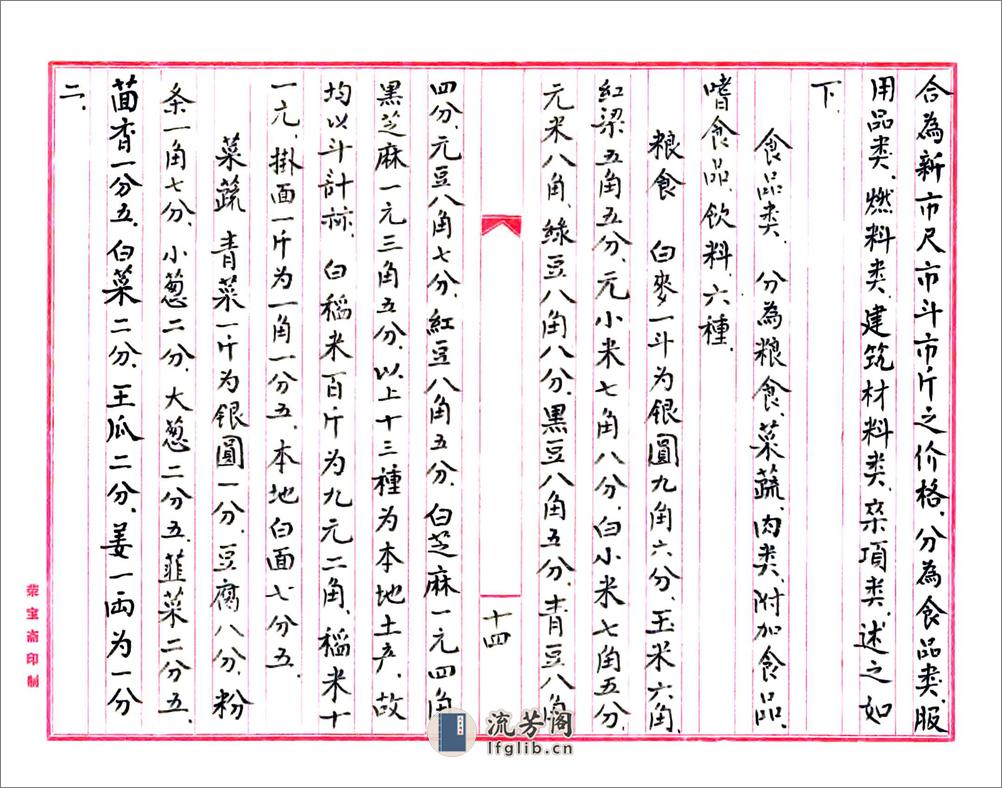 合為新市尺市斗市斤之价格、分為食品类、服
用品类、燃料类、建筑材料类、杂項类、述之如
下、
食品类、分為粮食、菜蔬、肉类、附加食品、
嗜食品、饮料、六種、
粮食 白麥一斗为银圓九角六分、玉米六角、
红梁五角五分、元小米七角八分、白小米七角五分、
元米八角、綠豆八角八分、黑豆八角五分、青豆八角
十四
四分、元豆八角七分、紅豆八角五分、白芝麻一元四角、
黑芝麻一元三角五分、以上十三種为本地土产、故
均以斗計秫、白稻米百斤为九元二角、稻米十
一元、掛面一斤为一角一分五、本地白面七分五、
菜蔬 青菜一斤为银圓一分、豆腐八分、粉
条一角七分、小葱二分、大葱二分五、韮菜二分五、
茴香一分五、白菜二分、王瓜二分、姜一両为一分
二、
荣宝斋印制
流芳阁
lfglib.cn